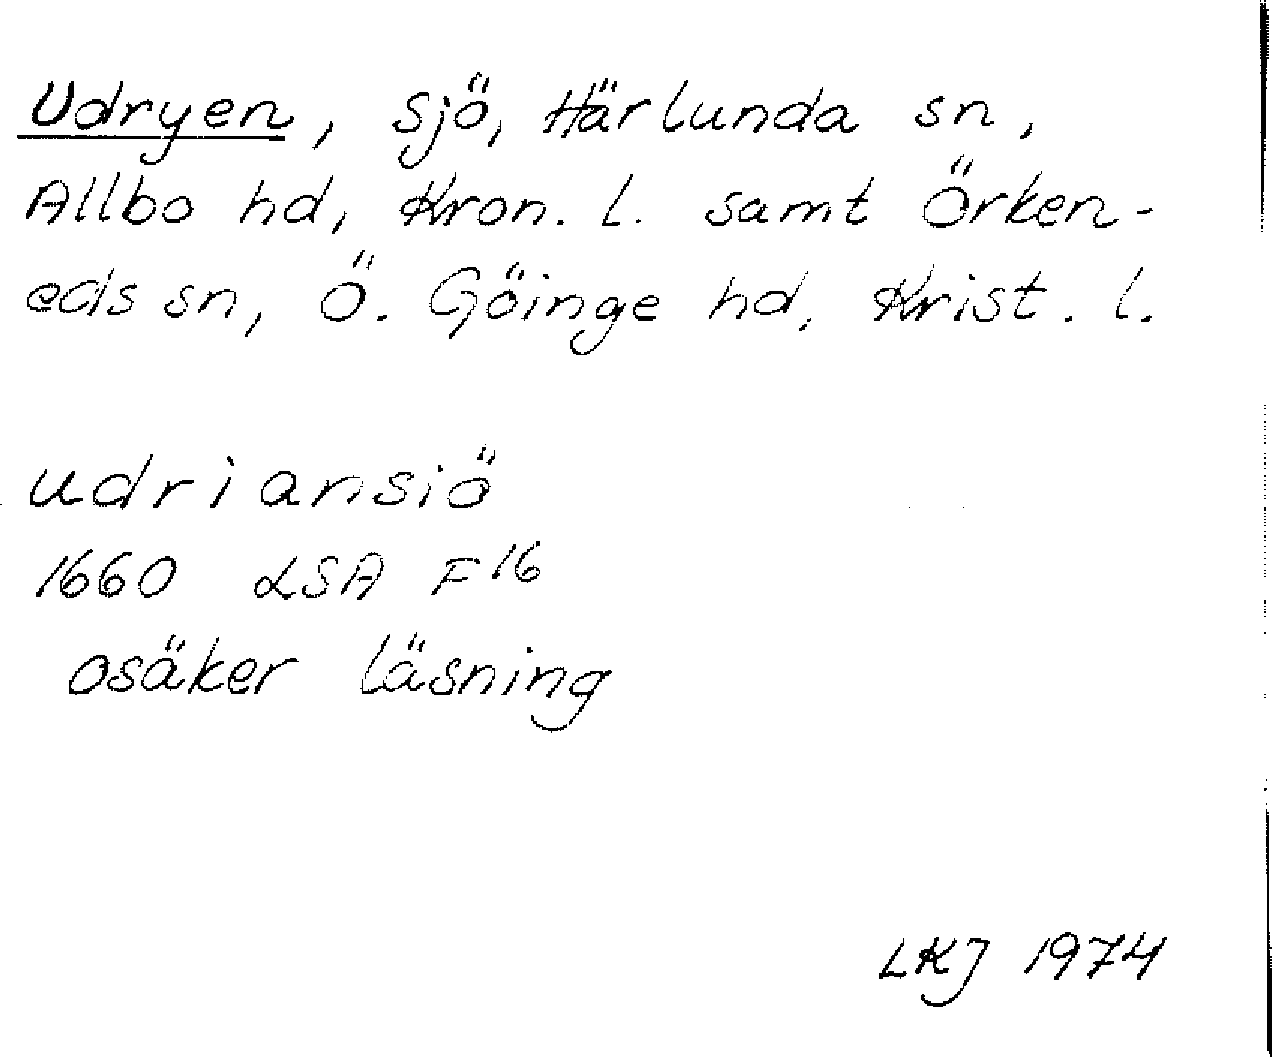 Udryen, sjö, Härlunda sn,
Allbo hd, Kron. l. samt Örken-
eds sn, Ö. Göinge hd, Krist. l.
udriansiö
1660 LSA F16
osäker läsning
LKJ 1974